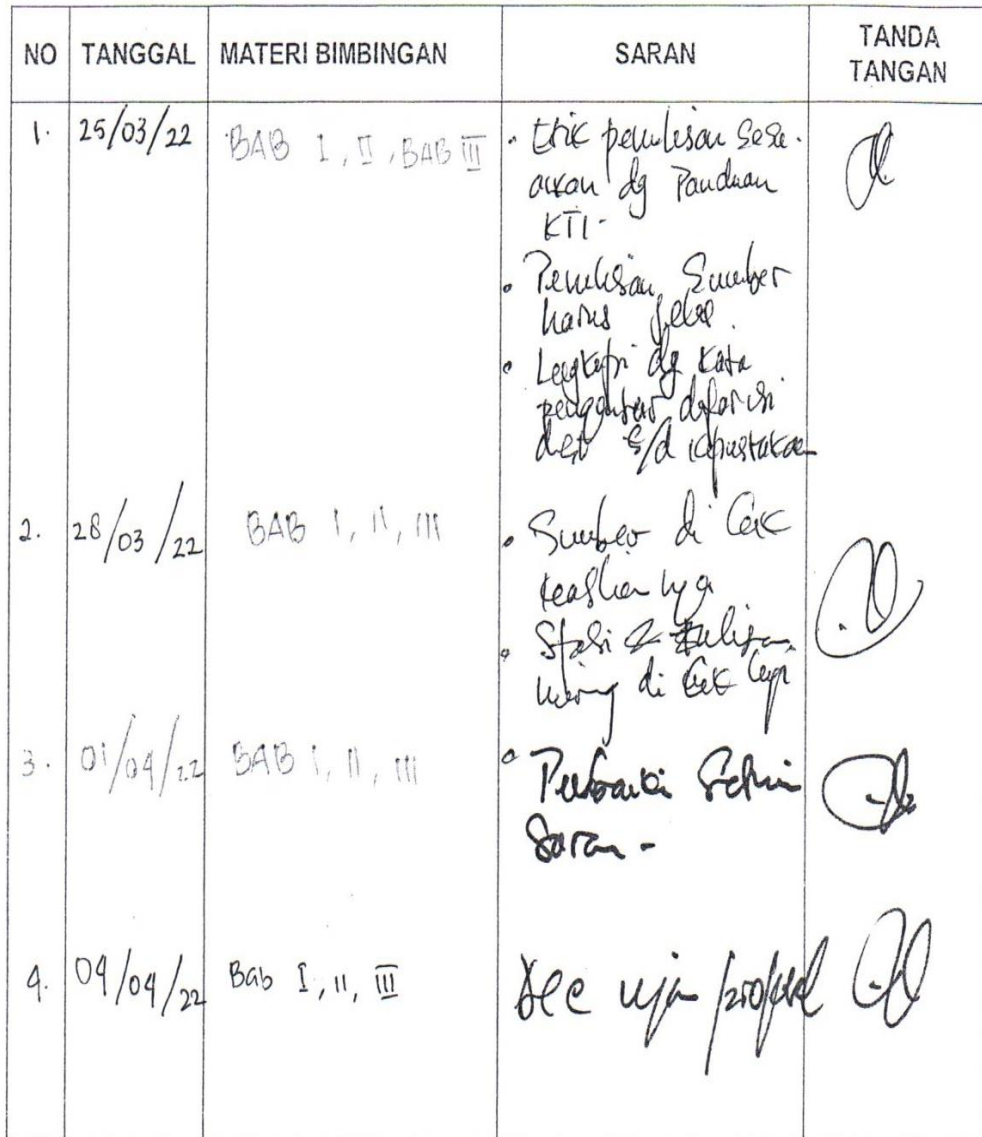 NO TANGGAL MATERI BIMBINGAN SARAN TANDA TANGAN
1. 25/03/22 BAB I, II, BAB III
• Etik penulisan sesu-
aikan dg Panduan
KTI-
• Penulisan Sumber
harus jelas
• Lengkapi dg Kata
pengantar daftar isi
s/d kpustakaan
2. 28/03/22 BAB I, II, III
• Sumber di Cek
keaslian nya
• & tulisan
miring di Cek lagi
3. 01/04/22 BAB I, II, III
• Perbaiki Sesuai
Saran -
4. 04/04/22 Bab I, II, III
Acc ujian proposal